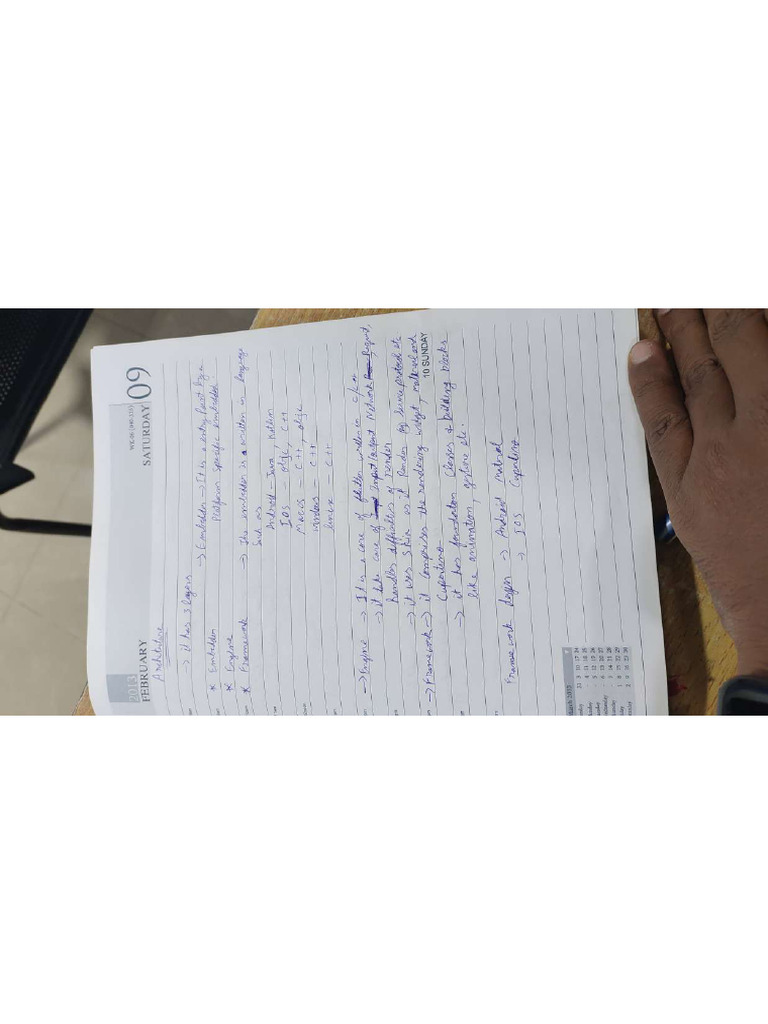 2013
FEBRUARY
WK-06 (040-325)
SATURDAY 09
Architecture
→ it has 3 layers
* Embedder → Embedder → It is a entry point by a
* Engine Platform specific embedded
* Framework → The embedder is written in language
Such as
Android - Java, Kotlin
IOS - objc, C++
Macos - C++, objc
windows - C++
linux - C++
→ Engine → It is a core of flutter written in c/c++
→ it take care of Input/output Network Request,
handles difficulties of render
→ it uses Skia as it Render
→ Framework → it comprises the rendering widget, material and
Cupertino
10 SUNDAY
→ it has foundation Classes & building blocks
like animation, gesture etc.
Frame work design → Android material
→ IOS Cupertino
March 2013